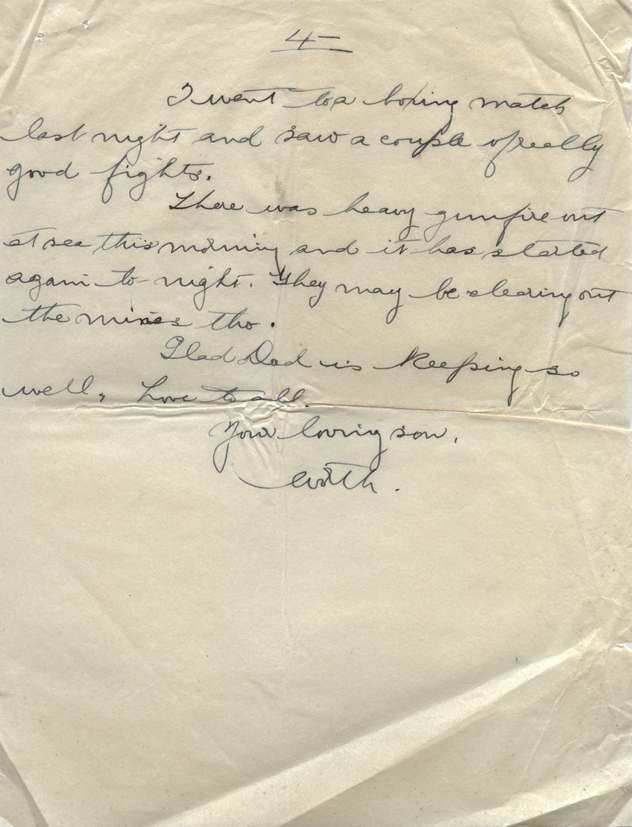 4-
I went to a boxing match
last night and saw a couple of really
good fights.
There was heavy gunfire out
at sea this morning and it has started
again to night. They may be clearing out
the mines tho.
Glad Dad is keeping so
well, Love to all.
Your loving son,